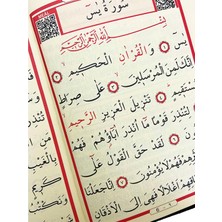 سُورَةُ يٰسٓ
بِسْمِ اللّٰهِ الرَّحْمٰنِ الرَّحِيمِ
يٰسٓ ۝ وَالْقُرْاٰنِ الْحَكِيمِ ۝
اِنَّكَ لَمِنَ الْمُرْسَلِينَ ۝ عَلٰى صِرَاطٍ
مُسْتَقِيمٍ ۝ تَنْزِيلَ الْعَزِيزِ الرَّحِيمِ ۝
لِتُنْذِرَ قَوْمًا مَٓا اُنْذِرَ اٰبَٓاؤُهُمْ فَهُمْ
لَقَدْ حَقَّ الْقَوْلُ عَلٰٓى
فَهُمْ لَا يُؤْمِنُونَ ۝ اِنَّا جَعَلْنَا
اَغْلَالًا فَهِيَ اِلَى الْاَذْقَانِ